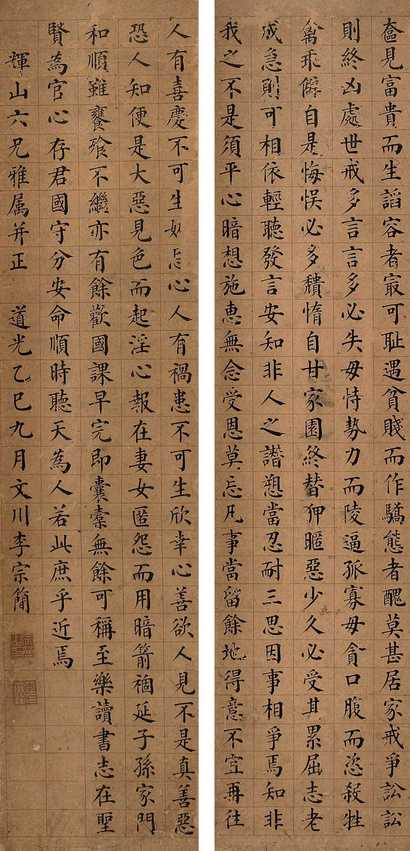 奩見富貴而生諂容者寂可耻遇貧賤而作驕態者醜莫甚居家戒爭訟訟
則終凶處世戒多言言多必失毋恃勢力而陵逼孤寡毋貪口腹而恣殺牲
禽乖僻自是悔悞必多穨惰自甘家園終替狎暱惡少久必受其累屈志老
成急則可相依輕聽發言安知非人之譖愬當忍耐三思因事相爭焉知非
我之不是須平心暗想施惠無念受恩莫忘凡事當留餘地得意不宜再往
人有喜慶不可生妒忌心人有禍患不可生欣幸心善欲人見不是真善惡
恐人知便是大惡見色而起淫心報在妻女匿怨而用暗箭禍延子孫家門
和順雖饔飧不繼亦有餘歡國課早完即囊橐無餘可稱至樂讀書志在聖
賢為官心存君國守分安命順時聽天為人若此庶乎近焉
輝山六兄雅属并正 道光乙巳九月文川李宗簡